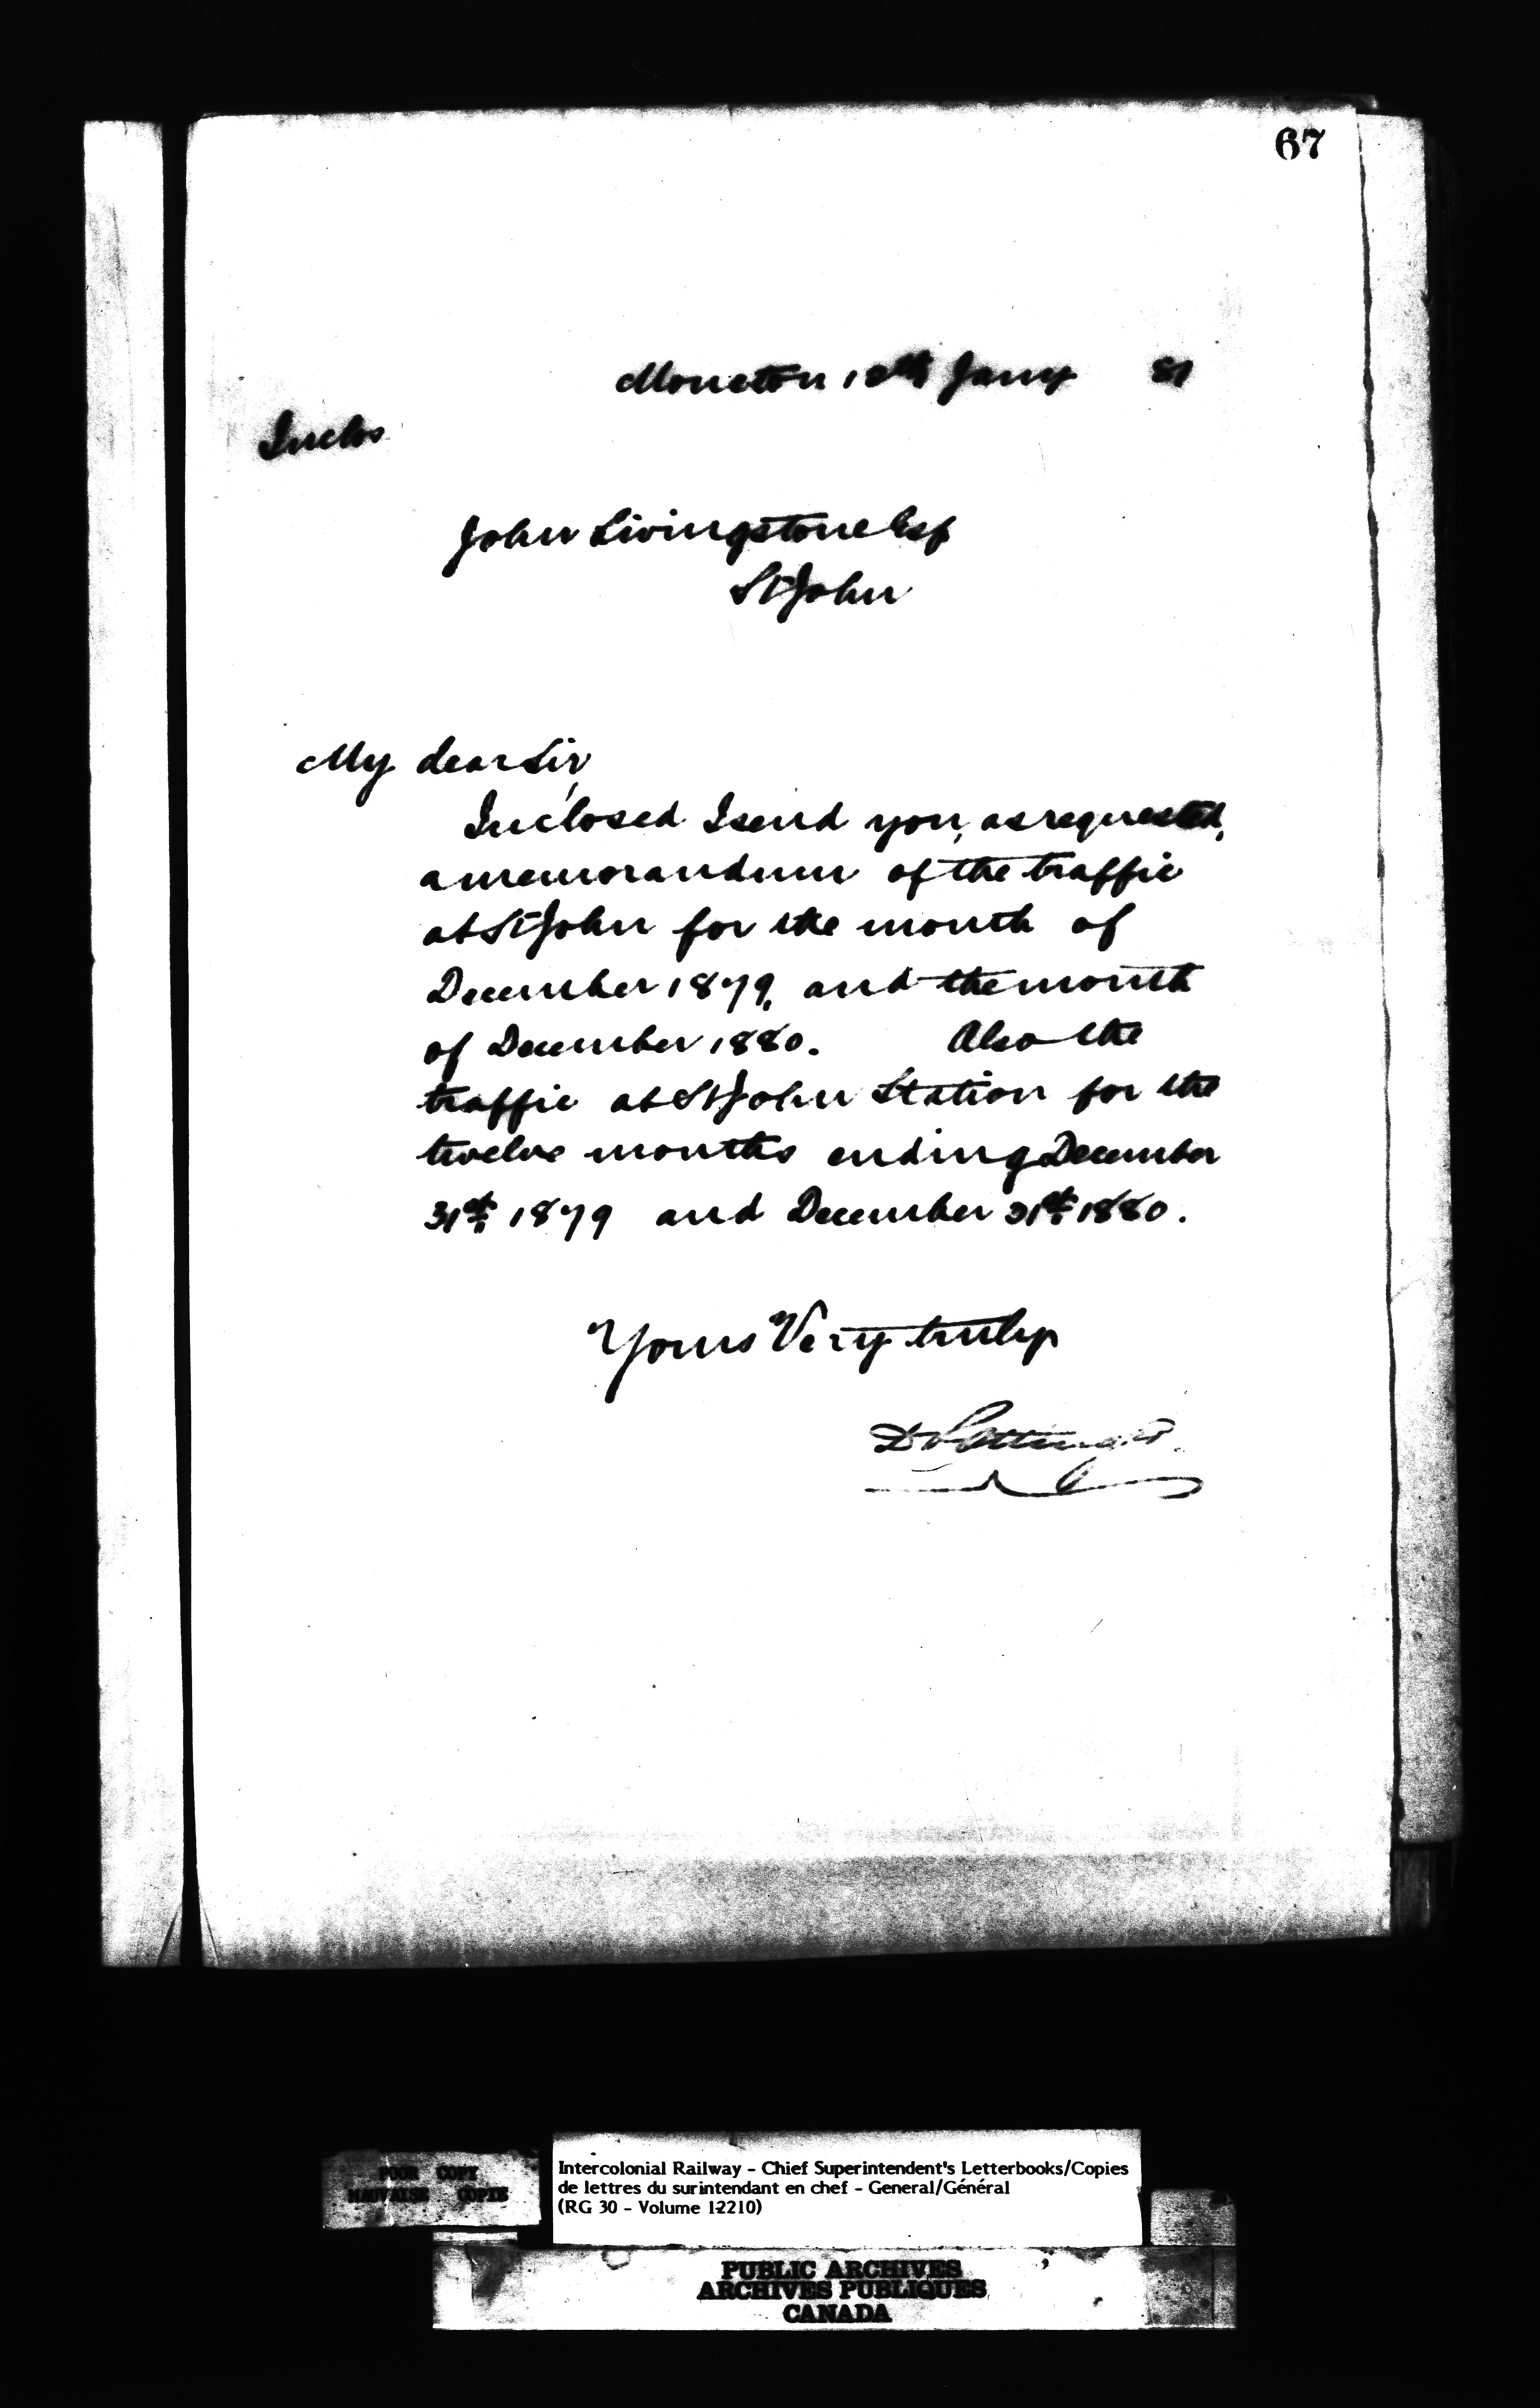 67
Moncton 18th Jany 81
Inclos
John Livingstone Esq
St John
My dear Sir,
Inclosed I send you, as requested,
a memorandum of the traffic
at St John for the month of
December 1879, and the month
of December 1880. Also the
traffic at St John Station for the
twelve months ending December
31st 1879 and December 31st 1880.
Yours Very truly
D Pottinger
POOR COPY
MAUVAISE COPIE
Intercolonial Railway - Chief Superintendent's Letterbooks/Copies
de lettres du surintendant en chef - General/Général
(RG 30 - Volume 12210)
PUBLIC ARCHIVES
ARCHIVES PUBLIQUES
CANADA